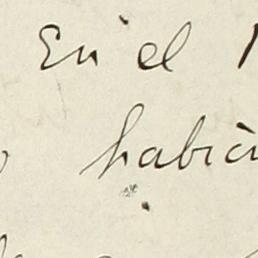 En el
habia